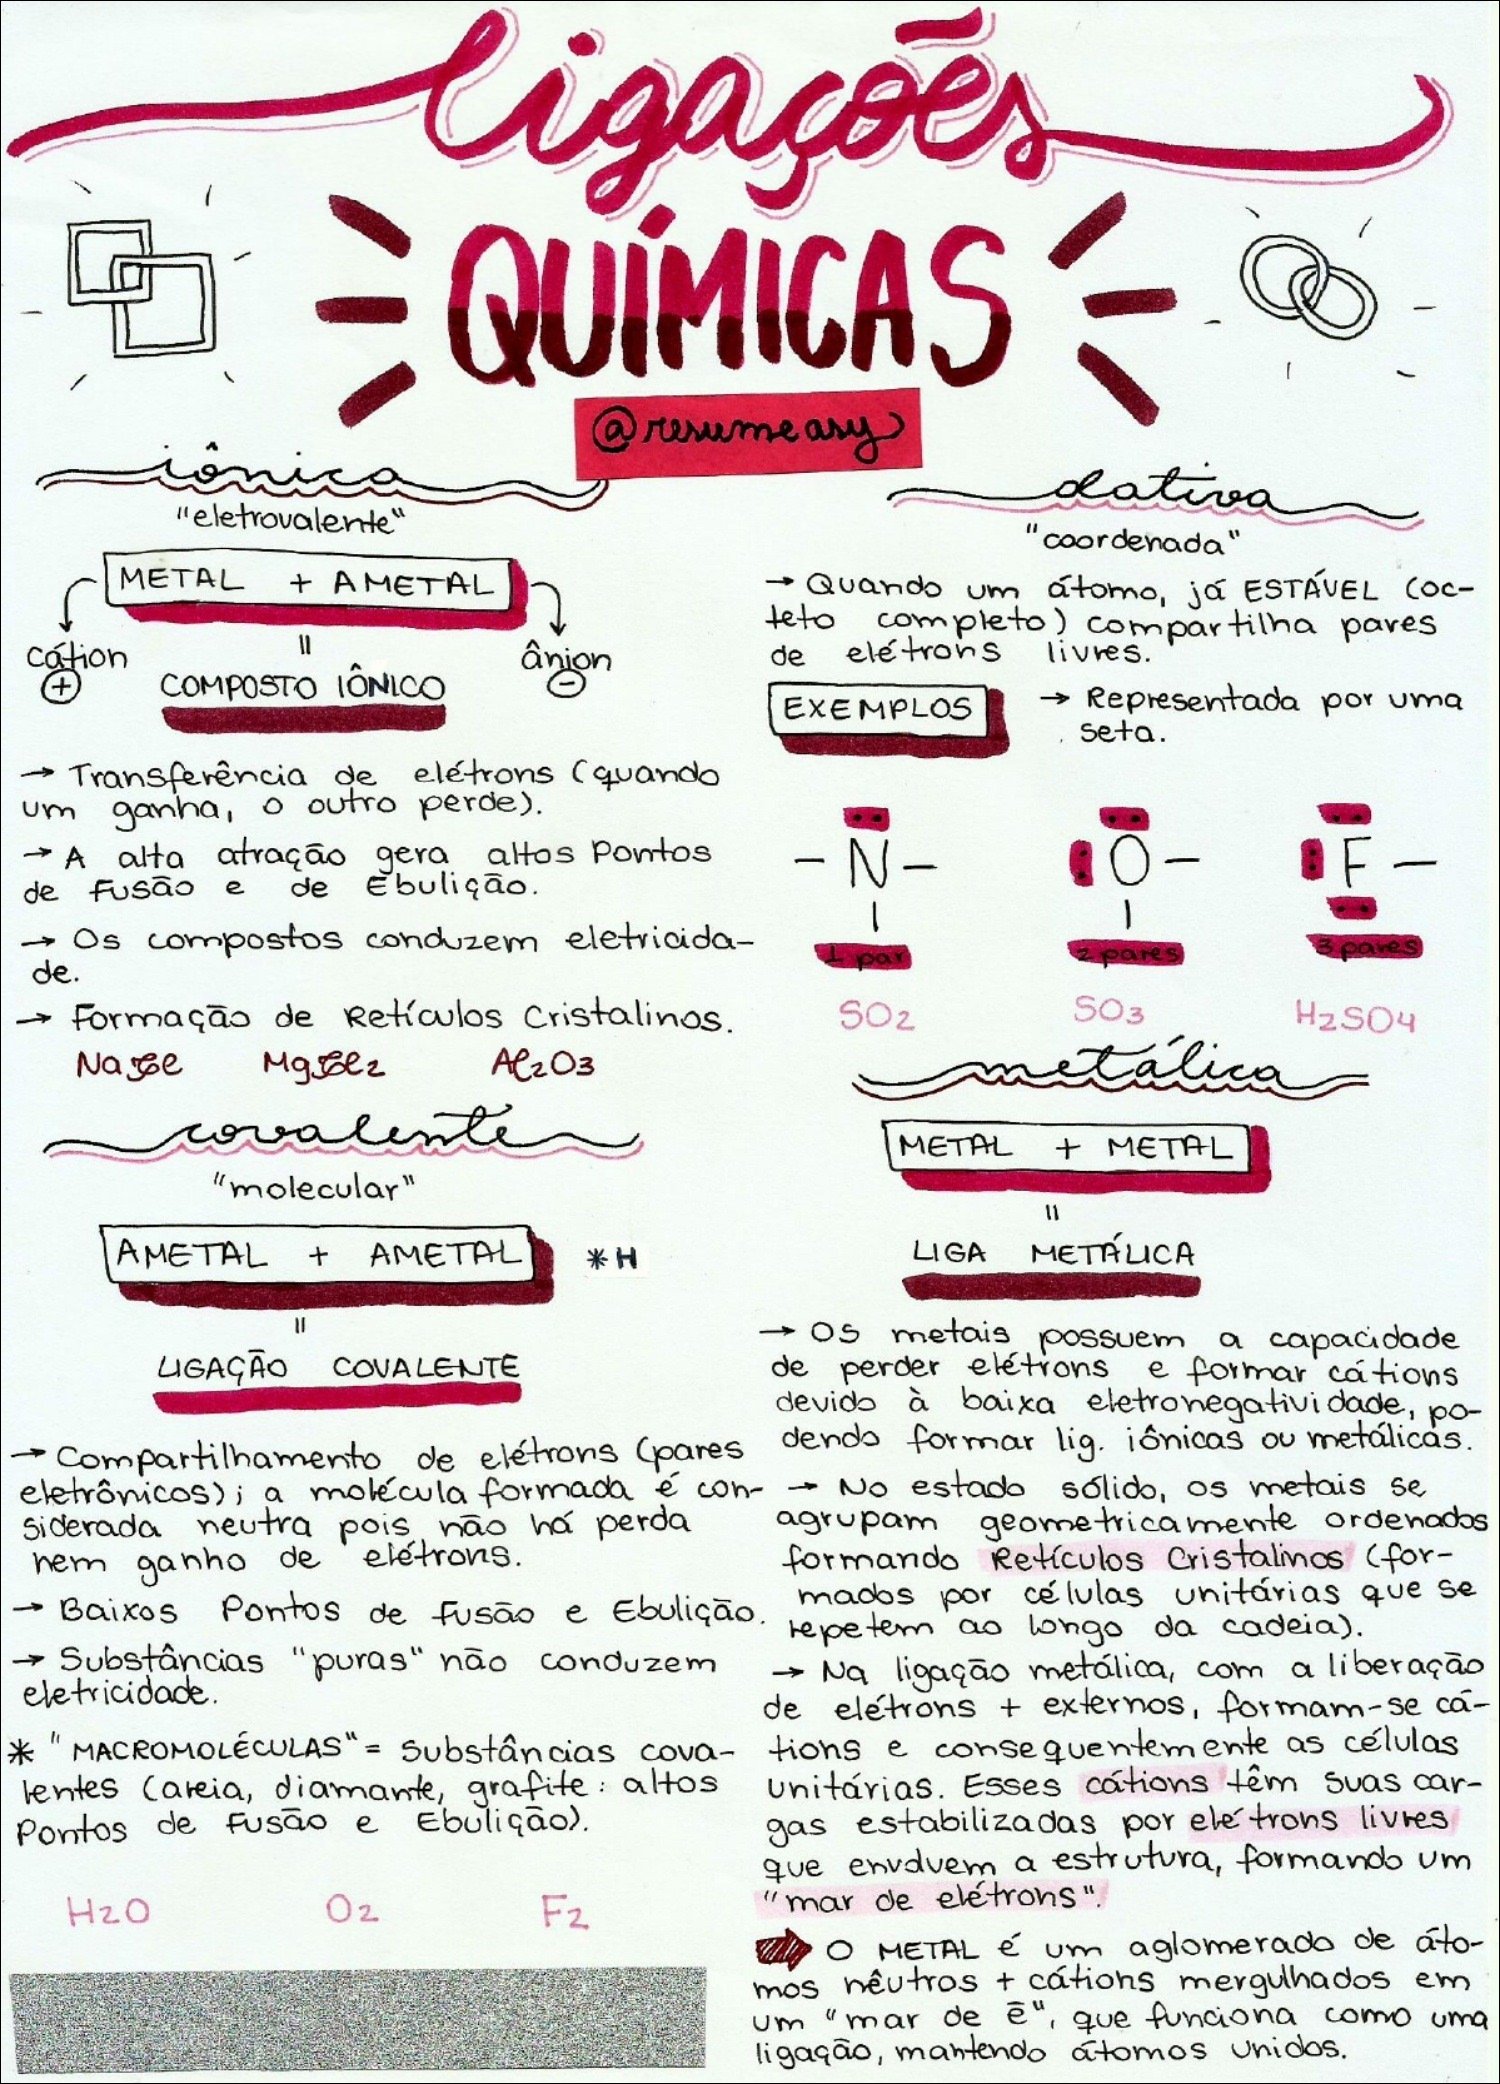 ligações
QUÍMICAS
@resumeasy
iônica
"eletrovalente"
METAL + AMETAL
cátion
+
ânion
-
=
COMPOSTO IÔNICO
→ Transferência de elétrons (quando
um ganha, o outro perde).
→ A alta atração gera altos Pontos
de Fusão e de Ebulição.
→ Os compostos conduzem eletricida-
de.
→ Formação de Retículos Cristalinos.
Al2O3
covalente
"molecular"
AMETAL + AMETAL
*H
=
LIGAÇÃO COVALENTE
→ Compartilhamento de elétrons (pares
eletrônicos); a molécula formada é con-
siderada neutra pois não há perda
nem ganho de elétrons.
→ Baixos Pontos de Fusão e Ebulição.
→ Substâncias "puras" não conduzem
eletricidade.
* "MACROMOLÉCULAS" = Substâncias cova-
lentes (areia, diamante, grafite: altos
Pontos de Fusão e Ebulição).
H2O O2 F2
dativa
"coordenada"
→ Quando um átomo, já ESTÁVEL (oc-
teto completo) compartilha pares
de elétrons livres.
EXEMPLOS
→ Representada por uma
seta.
N O F
1 par 2 pares 3 pares
SO2 SO3 H2SO4
metálica
METAL + METAL
=
LIGA METÁLICA
→ Os metais possuem a capacidade
de perder elétrons e formar cátions
devido à baixa eletronegatividade, po-
dendo formar lig. iônicas ou metálicas.
→ No estado sólido, os metais se
agrupam geometricamente ordenados
formando Retículos Cristalinos (for-
mados por células unitárias que se
repetem ao longo da cadeia).
→ Na ligação metálica, com a liberação
de elétrons + externos, formam-se cá-
tions e consequentemente as células
unitárias. Esses cátions têm suas car-
gas estabilizadas por elétrons livres
que envolvem a estrutura, formando um
"mar de elétrons".
O METAL é um aglomerado de áto-
mos nêutros + cátions mergulhados em
um "mar de ē", que funciona como uma
ligação, mantendo átomos unidos.